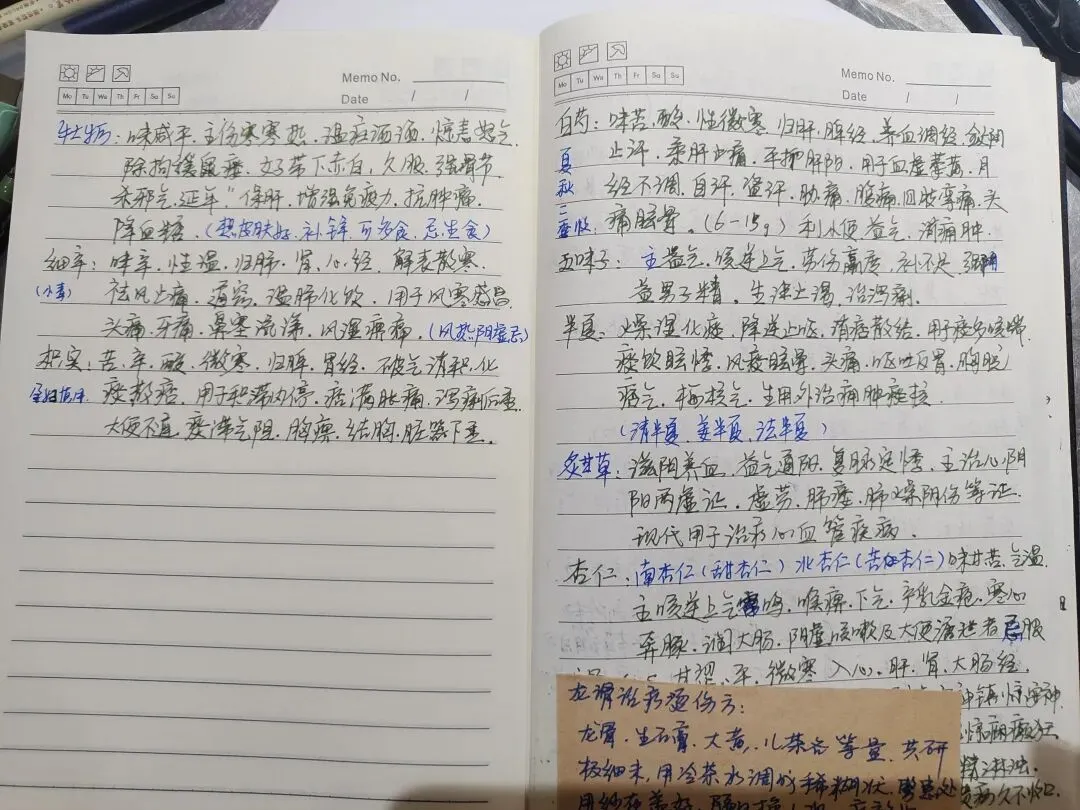 Memo No.
Mo Tu We Th Fr Sa Su
Date / /
牡蛎：味咸平.主伤寒寒热.温疟洒洒.惊恚怒气.
除拘缓鼠瘘.女子带下赤白,久服.强骨节
杀邪气.延年"保肝.增强免疫力.抗肿瘤.
降血糖.(想皮肤好.补锌可多食.忌生食)
细辛：味辛.性温.归肺.肾.心经.解表散寒.
(小毒) 祛风止痛.通窍.温肺化饮.用于风寒感冒.
头痛.牙痛.鼻塞流涕.风湿痹痛.(风热阴虚忌)
枳实：苦.辛.酸.微寒.归脾.胃经.破气消积.化
孕妇慎用. 痰散痞.用于积滞内停.痞满胀痛.泻痢后重.
大便不通.痰滞气阻.胸痹.结胸.脏器下垂.
Memo No.
Mo Tu We Th Fr Sa Su
Date / /
白芍：味苦.酸.性微寒.归肝.脾经.养血调经.敛阴
止汗.柔肝止痛.平抑肝阳.用于血虚萎黄.月
夏秋二季收. 经不调.自汗.盗汗.胁痛.腹痛.四肢挛痛.头
痛眩晕.(6-15g)利小便.益气.消痈肿.
五味子：主益气.咳逆上气.劳伤羸瘦.补不足.强阴
益男子精.生津止渴.治泻痢.
半夏.燥湿化痰.降逆止呕.消痞散结.用于痰多咳喘
痰饮眩悸.风痰眩晕.头痛.呕吐反胃.胸脘
痞气.梅核气.生用外治痈肿痰核.
(清半夏.姜半夏.法半夏)
炙甘草：滋阴养血.益气通阳.复脉定悸.主治心阴
阳两虚证.虚劳.肺痿.肺燥阴伤等证.
现代用于治疗心血管疾病.
杏仁.南杏仁(甜杏仁)北杏仁(苦杏仁)味甘苦.气温.
主咳逆上气雷鸣.喉痹.下气.产乳金疮.寒心
奔豚.润大肠.阴虚咳嗽及大便溏泄者忌服
甘涩.平.微寒 入心.肝.肾.大肠经.
龙骨治疗烫伤方：
龙骨.生石膏.大黄.儿茶各等量.共研
极细末.用冷茶水调成稀糊状.敷患处
久不收口.